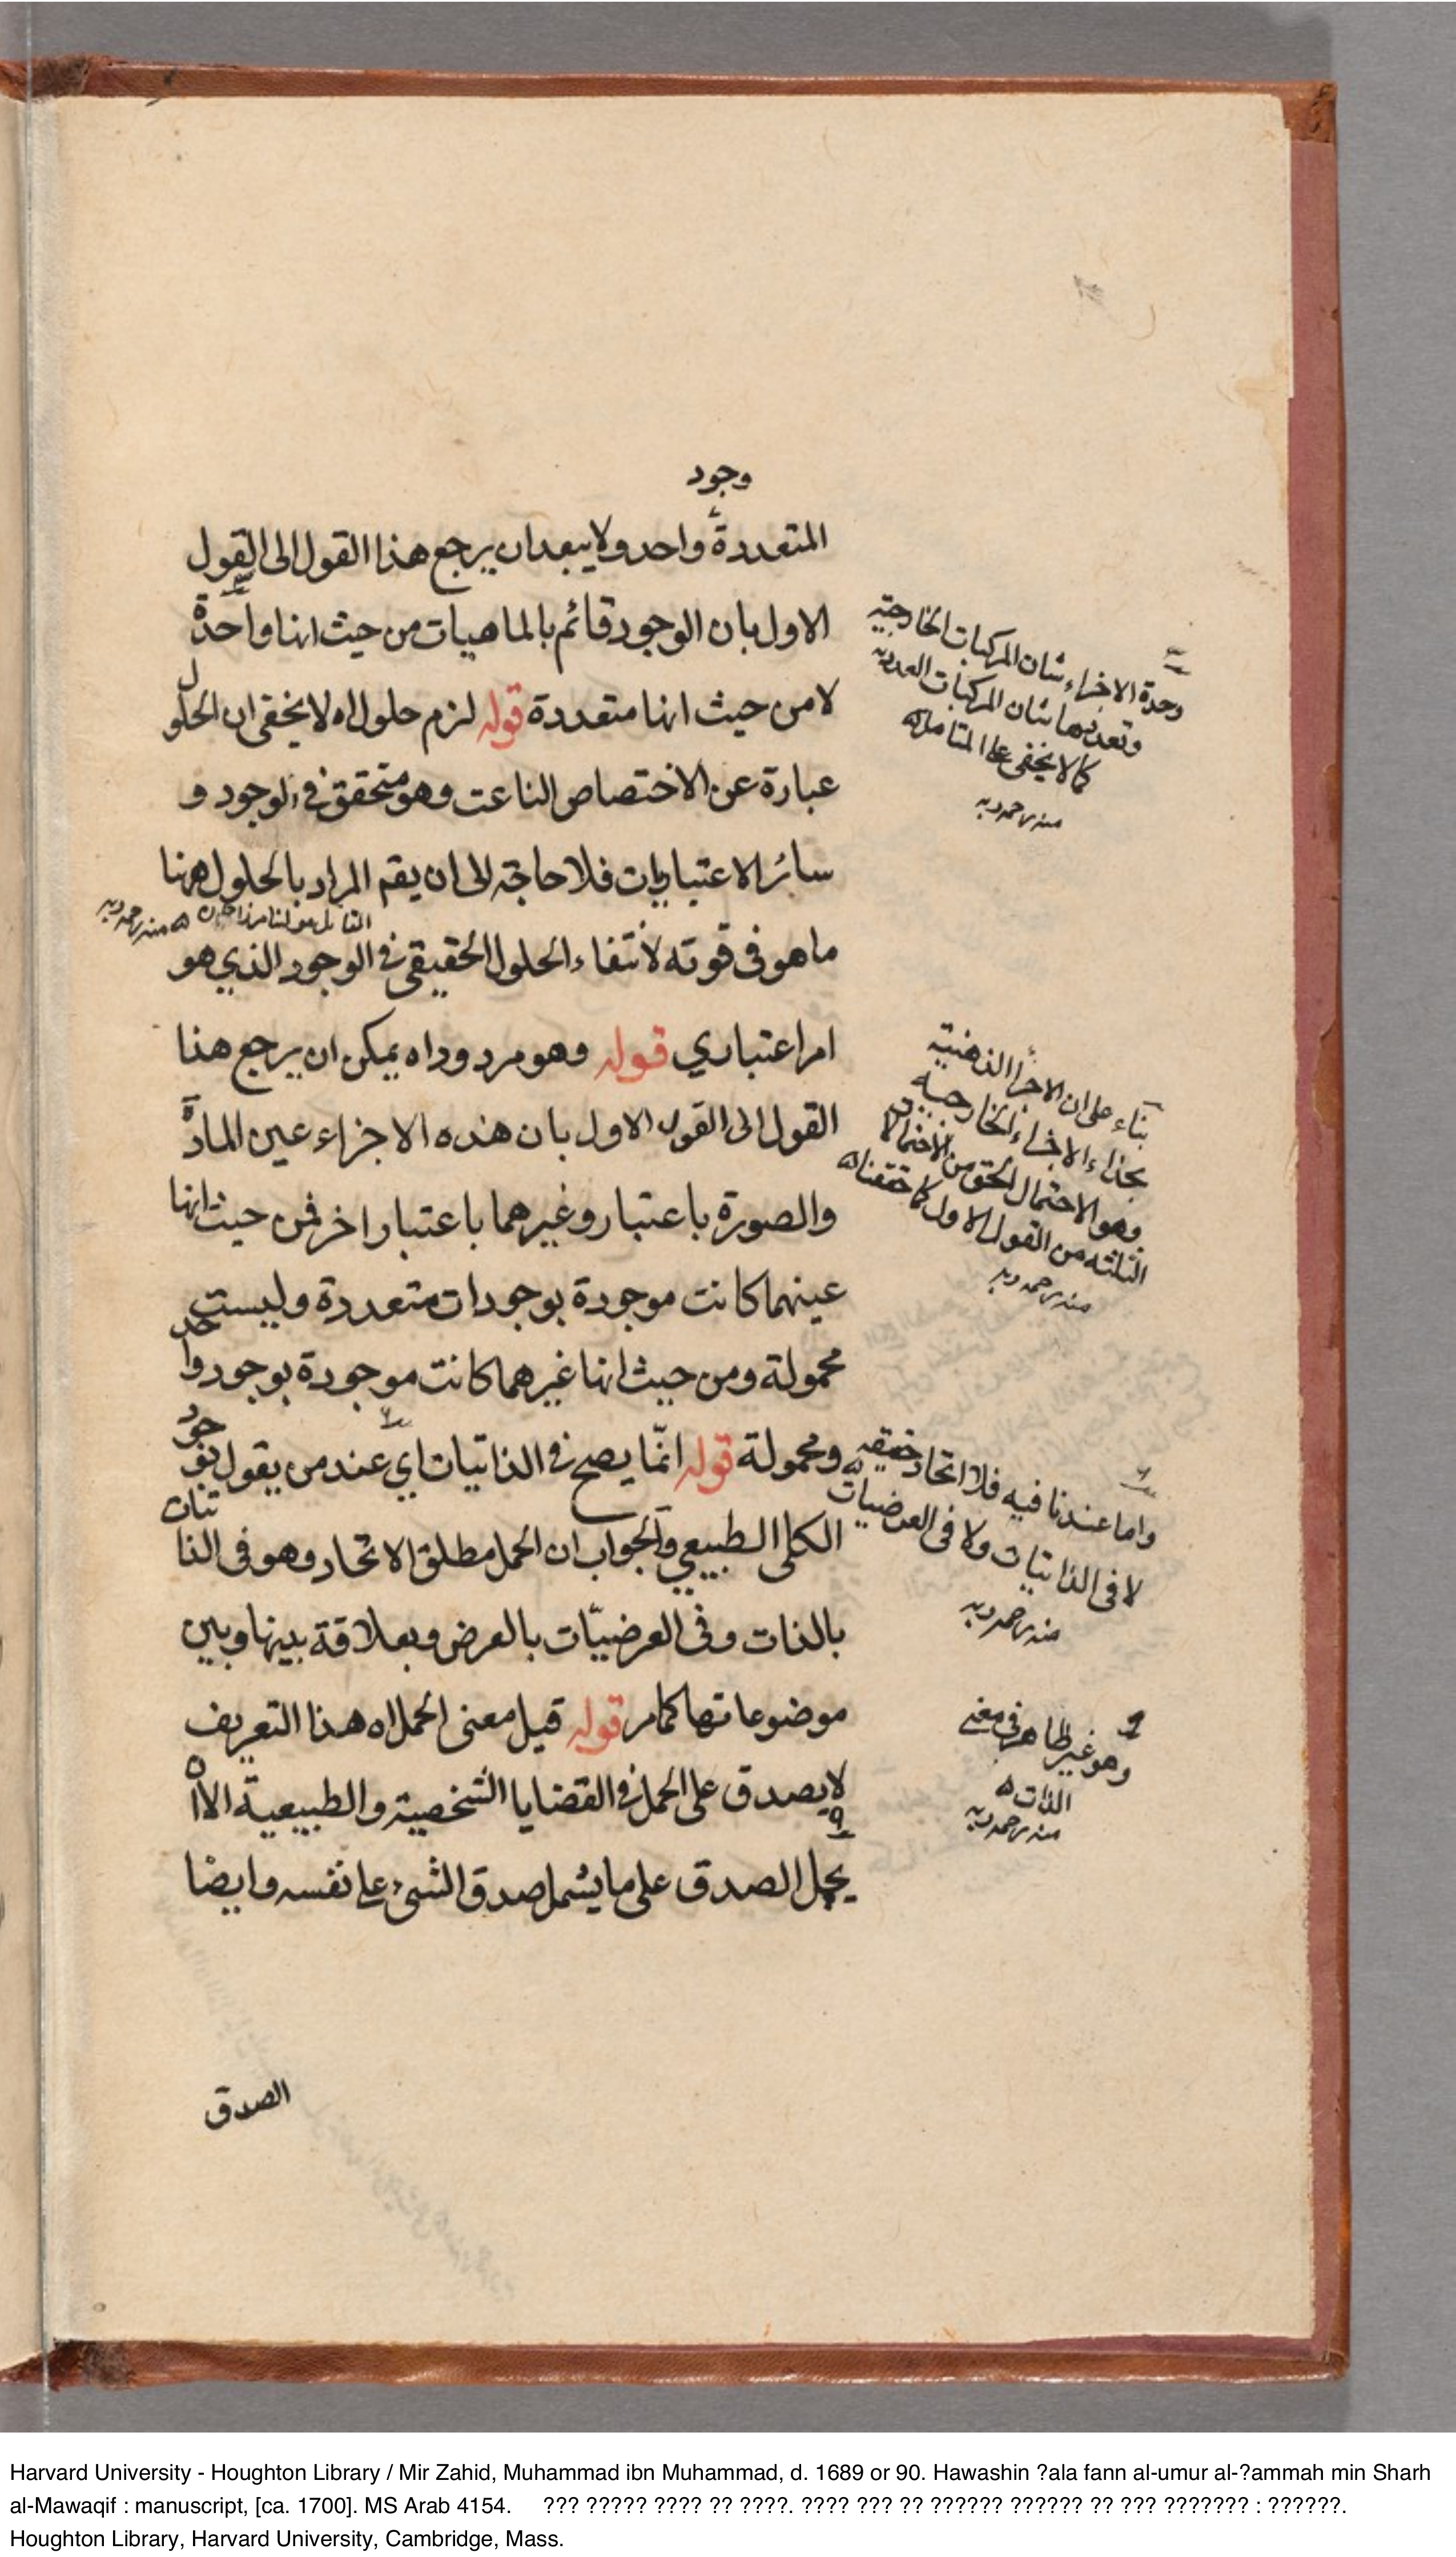 وجود
المتعددة واحد ولا يبعد ان يرجع هذا القول الى القول
الاول بان الوجود قائم بالماهيات من حيث انها واحدة
لا من حيث انها متعددة قوله لزم حلول اه لا يخفى ان الحلول
عبارة عن الاختصاص الناعت وهو متحقق في الوجود و
سائر الاعتباريات فلا حاجة الى ان يقم المراد بالحلول ههنا
القائل مولنا مرزا جان ه منه رحمه ربه
ما هو في قوته لانتفاء الحلول الحقيقي في الوجود الذي هو
امر اعتباري قوله وهو مردود اه يمكن ان يرجع هذا
القول الى القول الاول بان هذه الاجزاء عين المادة
والصورة باعتبار وغيرهما باعتبار اخر فمن حيث انها
عينهما كانت موجودة بوجودات متعددة وليست
محمولة ومن حيث انها غيرهما كانت موجودة بوجود واحد
ومحمولة قوله انّما يصح في الذاتيات اي عند من يقول بوجود
الكلى الطبيعي والجواب ان الحمل مطلق الاتحاد وهو في الذاتيات
بالذات وفى العرضيّات بالعرض وبعلاقة بينها وبين
موضوعاتها كما مر قوله قيل معنى الحمل اه هذا التعريف
لا يصدق على الحمل في القضايا الشخصية والطبيعية الا ان
يحمل الصدق على ما يشمل صدق الشىء على نفسه وايضا
الصدق
وحدة الاجزاء شان المركبات الخارجية
وتعددها شان المركبات العددية
كما لا يخفى على المتامل ه
منه رحمه ربه
بناء على ان الاجزا الذهنية
بحذاء الاجزاء الخارجية
وهو الاحتمال الحق من الاحتمالات
الثلثة من القول الاول كما حققنا ه
منه رحمه ربه
واما عندنا فيه فلا اتحاد حقيقة
لا فى الذاتيات ولا فى العرضيات ه
منه رحمه ربه
وهو غير ظاهر في معنى
الذات ه
منه رحمه ربه
Harvard University - Houghton Library / Mir Zahid, Muhammad ibn Muhammad, d. 1689 or 90. Hawashin ?ala fann al-umur al-?ammah min Sharh
al-Mawaqif : manuscript, [ca. 1700]. MS Arab 4154. ??? ????? ???? ?? ????. ???? ??? ?? ?????? ?????? ?? ??? ??????? : ??????.
Houghton Library, Harvard University, Cambridge, Mass.